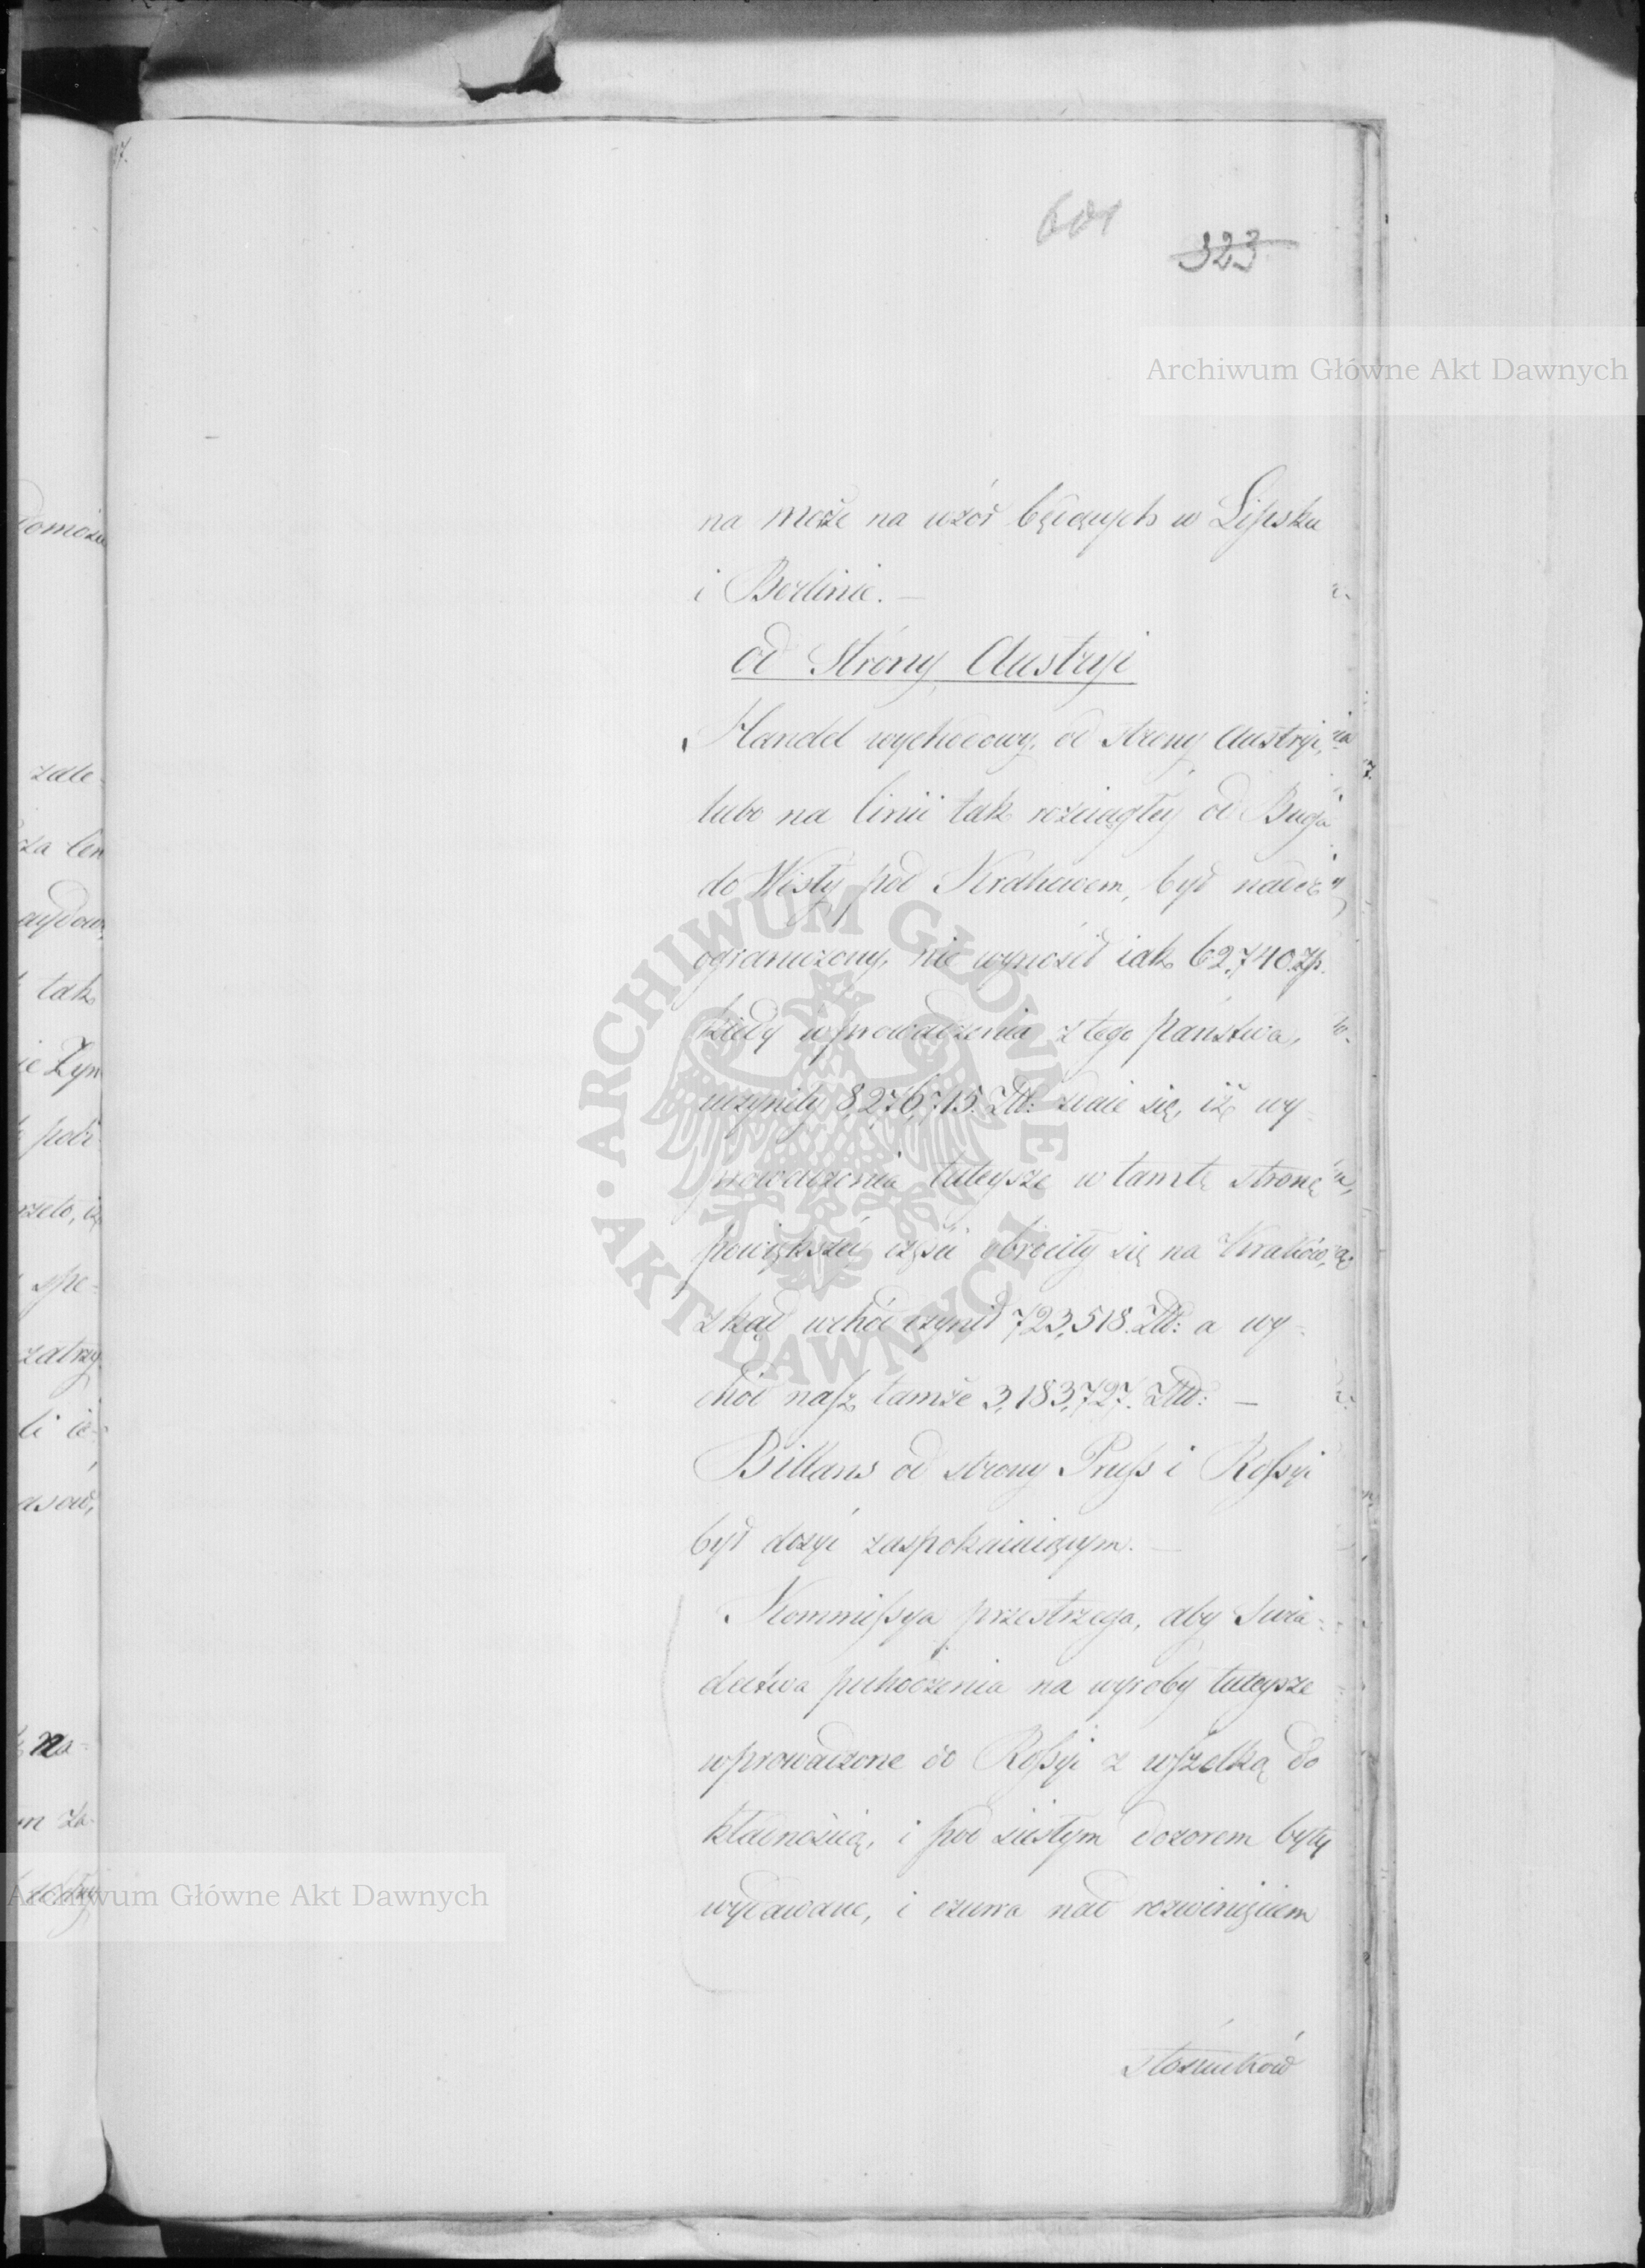 601
323
na może na wzór będących w Lipsku
i Berlinie. —
od Strony Austryi
Handel wychodowy, od strony Austryi,
lubo na linii tak rozciągłéj od Buga
do Wisły pod Krakowem, był nader
ograniczony, nie wynosił iak 62,740. Zp.
kiedy wprowadzenia z tego Państwa,
uczyniły 8,276,715. Złł: zdaie się, iż wy-
prowadzenia tuteysze w tamtę stronę
powiększéy części obróciły się na Kraków,
zkąd wchód czynił 723,518. Złł: a wy-
chód nasz tamże 3,183,727. Złł: —
Billans od strony Pruss i Rossyi
był dosyć zaspokaiaiącym. —
Kommissya przestrzega, aby świa-
dectwa pochodzenia na wyroby tuteysze
wprowadzone do Rossyi z wszelką do
kładnością, i pod ścisłym dozorem były
wydawane, i czuwa nad rozwinięciem
stosunków
Archiwum Główne Akt Dawnych
ARCHIWUM GŁÓWNE AKT DAWNYCH
Archiwum Główne Akt Dawnych